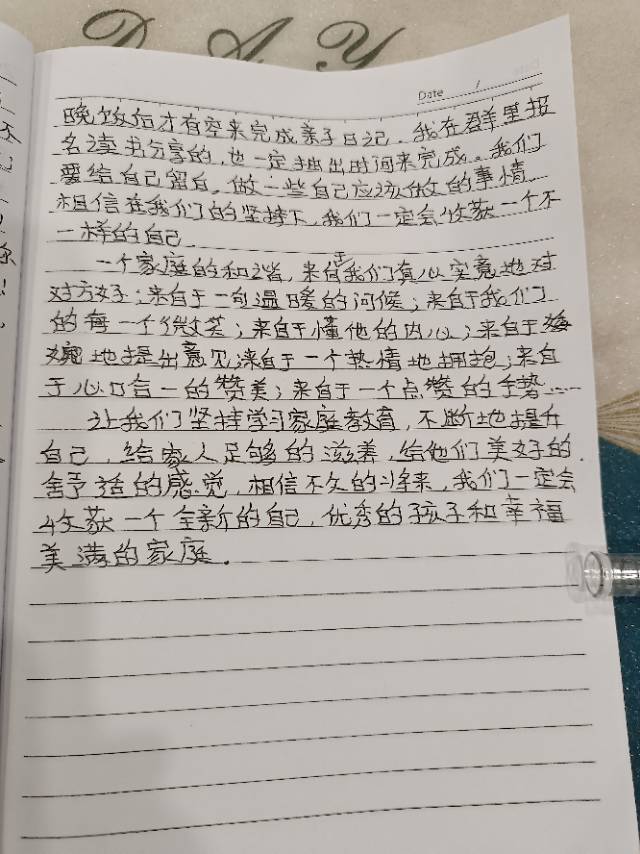 DAY
Date /
晚饭后才有空来完成亲子日记。我在群里报
名读书分享的,也一定抽出时间来完成。我们
要给自己留白,做一些自己应该做的事情
相信在我们的坚持下,我们一定会收获一个不
一样的自己.
一个家庭的和谐,来自于我们真心实意地对
对方好;来自于一句温暖的问候;来自于我们
的每一个微笑;来自于懂他的内心;来自于委
婉地提出意见;来自于一个热情地拥抱;来自
于心口合一的赞美;来自于一个点赞的手势……
让我们坚持学习家庭教育,不断地提升
自己,给家人足够的滋养,给他们美好的
舒适的感觉,相信不久的将来,我们一定会
收获一个全新的自己,优秀的孩子和幸福
美满的家庭.